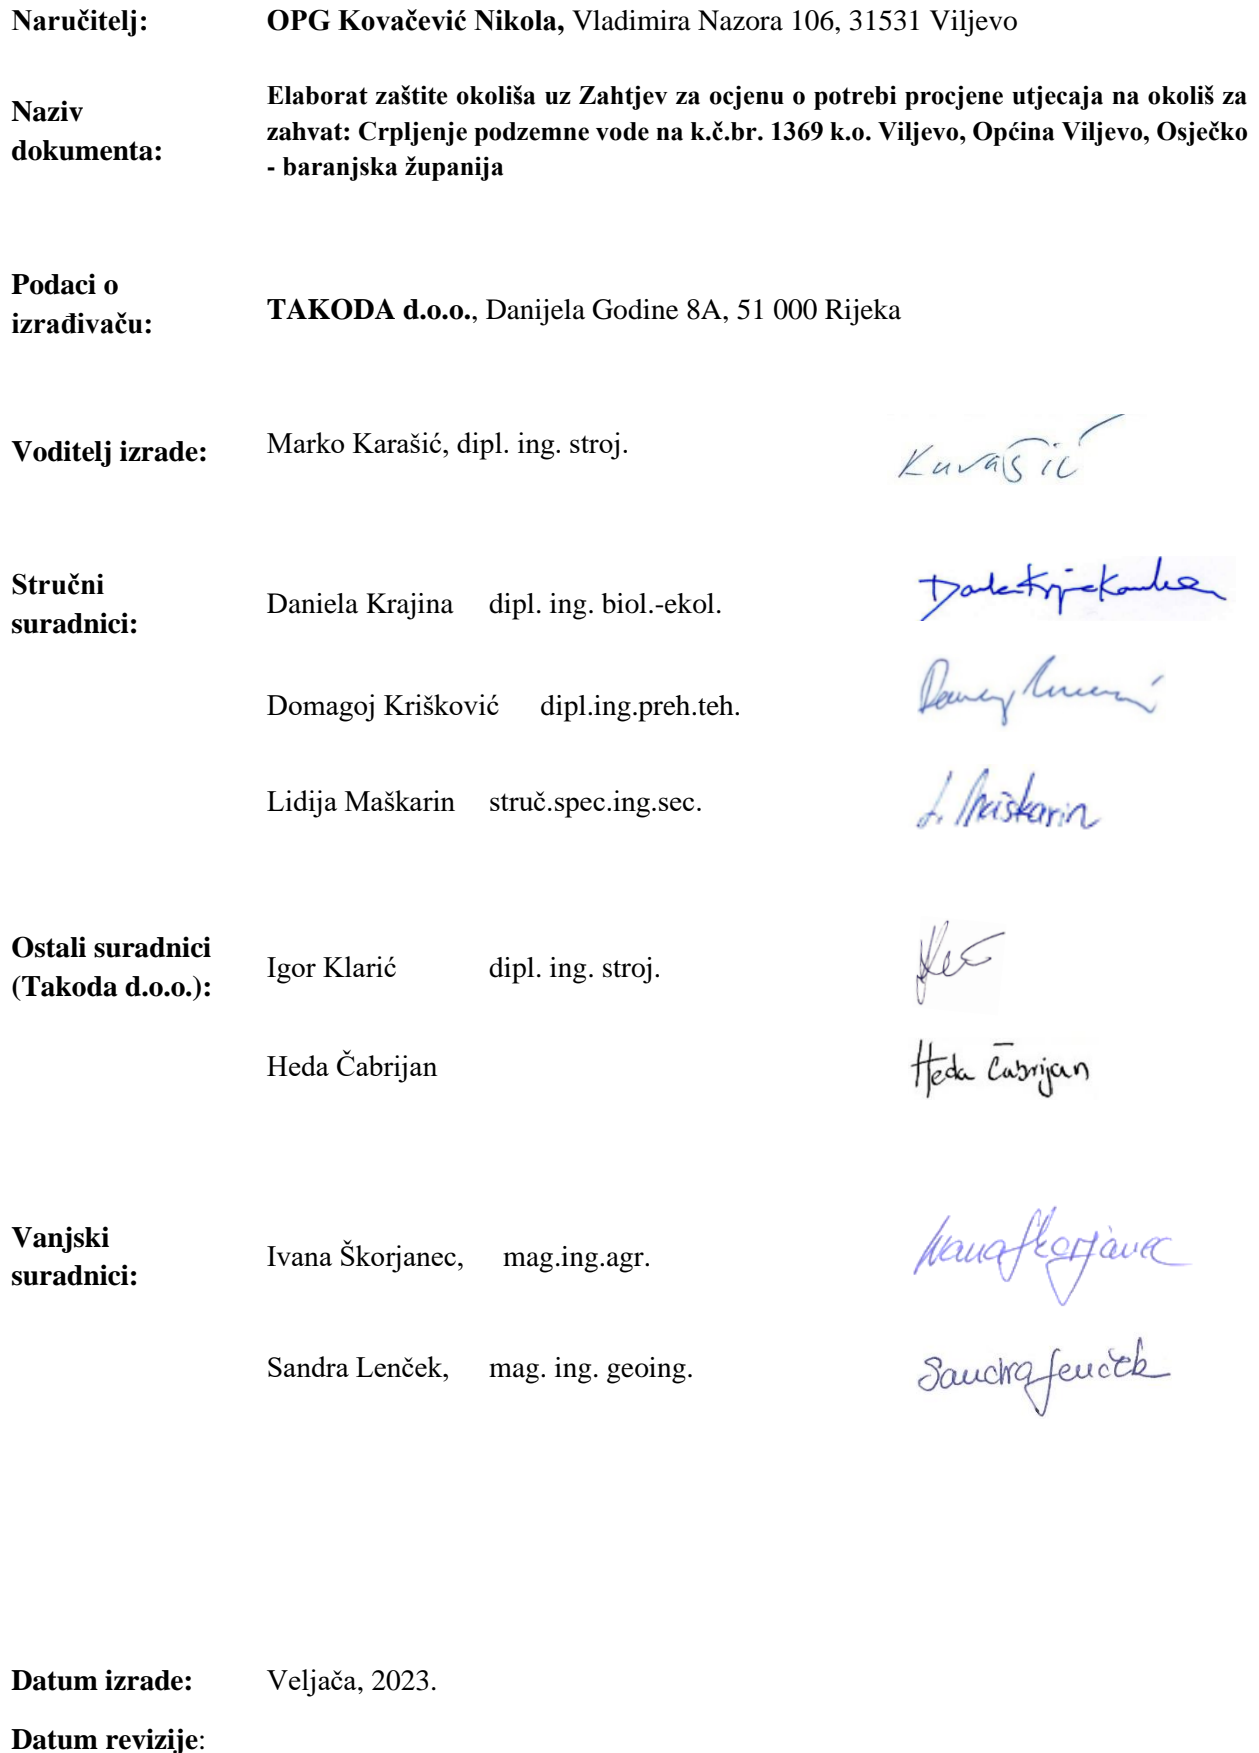 Naručitelj: OPG Kovačević Nikola, Vladimira Nazora 106, 31531 Viljevo
Naziv dokumenta: Elaborat zaštite okoliša uz Zahtjev za ocjenu o potrebi procjene utjecaja na okoliš za
zahvat: Crpljenje podzemne vode na k.č.br. 1369 k.o. Viljevo, Općina Viljevo, Osječko
- baranjska županija
Podaci o
izrađivaču: TAKODA d.o.o., Danijela Godine 8A, 51 000 Rijeka
Voditelj izrade: Marko Karašić, dipl. ing. stroj. Karašić
Stručni
suradnici: Daniela Krajina dipl. ing. biol.-ekol.
Domagoj Krišković dipl.ing.preh.teh.
Lidija Maškarin struč.spec.ing.sec. L. Maškarin
Ostali suradnici
(Takoda d.o.o.): Igor Klarić dipl. ing. stroj.
Heda Čabrijan Heda Čabrijan
Vanjski
suradnici: Ivana Škorjanec, mag.ing.agr. Ivana Škorjanec
Sandra Lenček, mag. ing. geoing. Sandra Lenček
Datum izrade: Veljača, 2023.
Datum revizije: